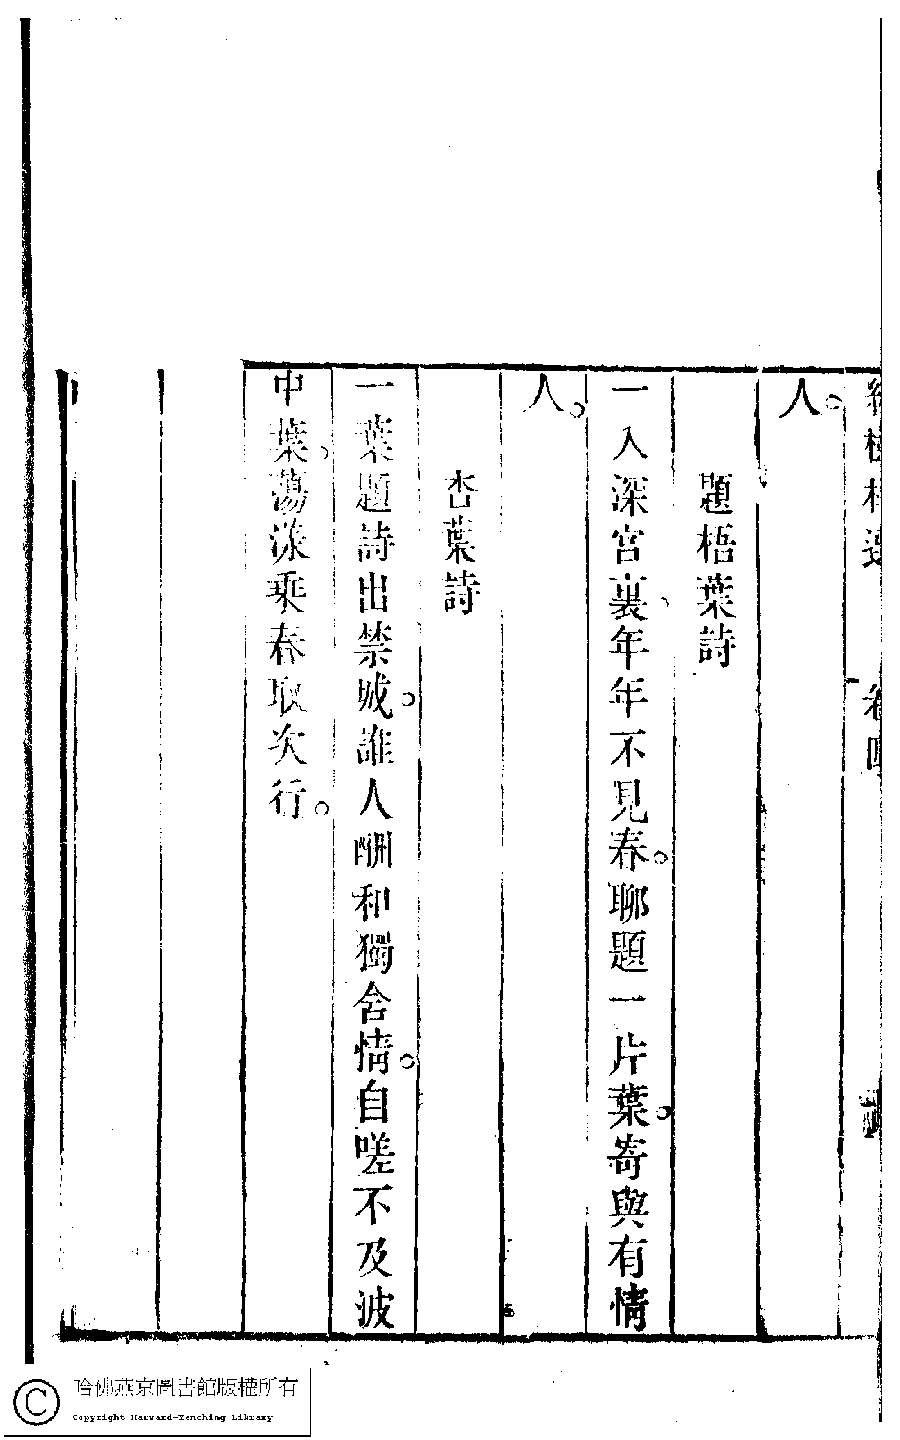 人。
題梧葉詩
一入深宮裏、年年不見春。聊題一片葉。寄與有情
人。
杏葉詩
一葉題詩出禁城。誰人酬和獨含情。自嗟不及波
中葉、蕩漾乘春取次行。
哈佛燕京圖書館版權所有
Copyright Harvard-Yenching Library